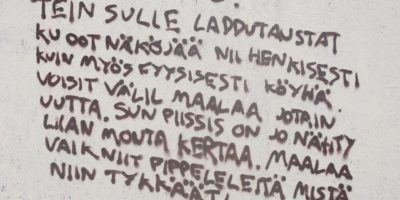 TEIN SULLE LADDUTAUSTAT
KU OOT NÄKÖJÄÄ NII HENKISESTI
KUIN MYÖS FYYSISESTI KÖYHÄ.
VOISIT VÄLIL MAALAA JOTAIN
UUTTA. SUN PIISSIS ON JO NÄHTY
LIIAN MONTA KERTAA. MAALAA
VAIK NIIT PIPPELELEITÄ MISTÄ
NIIN TYKKÄÄT!